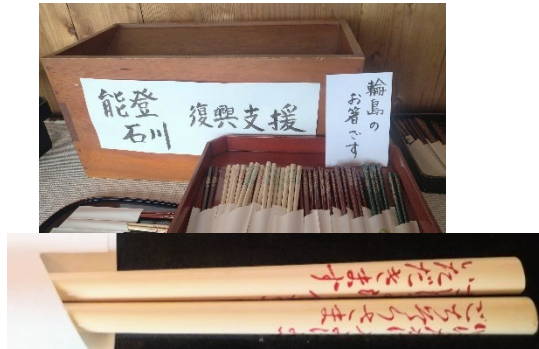 能登
石川
復興支援
輪島の
お箸です
いただきます
ごちそうさま